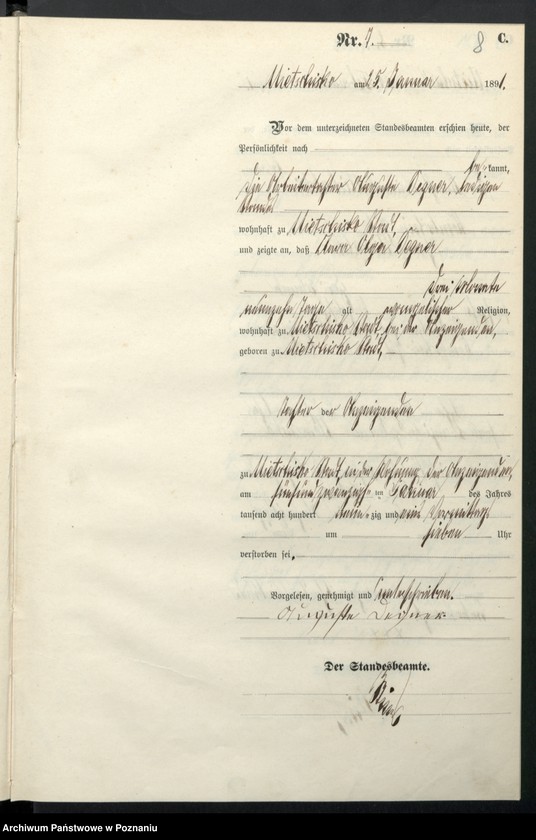 Nr. 7. 8 C.
Mietschisko am 25. Januar 1891.
Vor dem unterzeichneten Standesbeamten erschien heute, der
Persönlichkeit nach
be kannt,
die Arbeitertochter Auguste Degner, ledigen
Standes
wohnhaft zu Mietschisko Stadt,
und zeigte an, daß Anna Olga Degner
drei Monate
neunzehn Tage alt evangelischer Religion,
wohnhaft zu Mietschisko Stadt, bei der Anzeigenden,
geboren zu Mietschisko Stadt,
Tochter der Anzeigenden
zu Mietschisko Stadt, in der Wohnung der Anzeigenden,
am fünfundzwanzigsten Januar des Jahres
tausend acht hundert neunzig und ein Vormittags
um sieben Uhr
verstorben sei.
Vorgelesen, genehmigt und unterschrieben.
Auguste Degner
Der Standesbeamte.
Archiwum Państwowe w Poznaniu